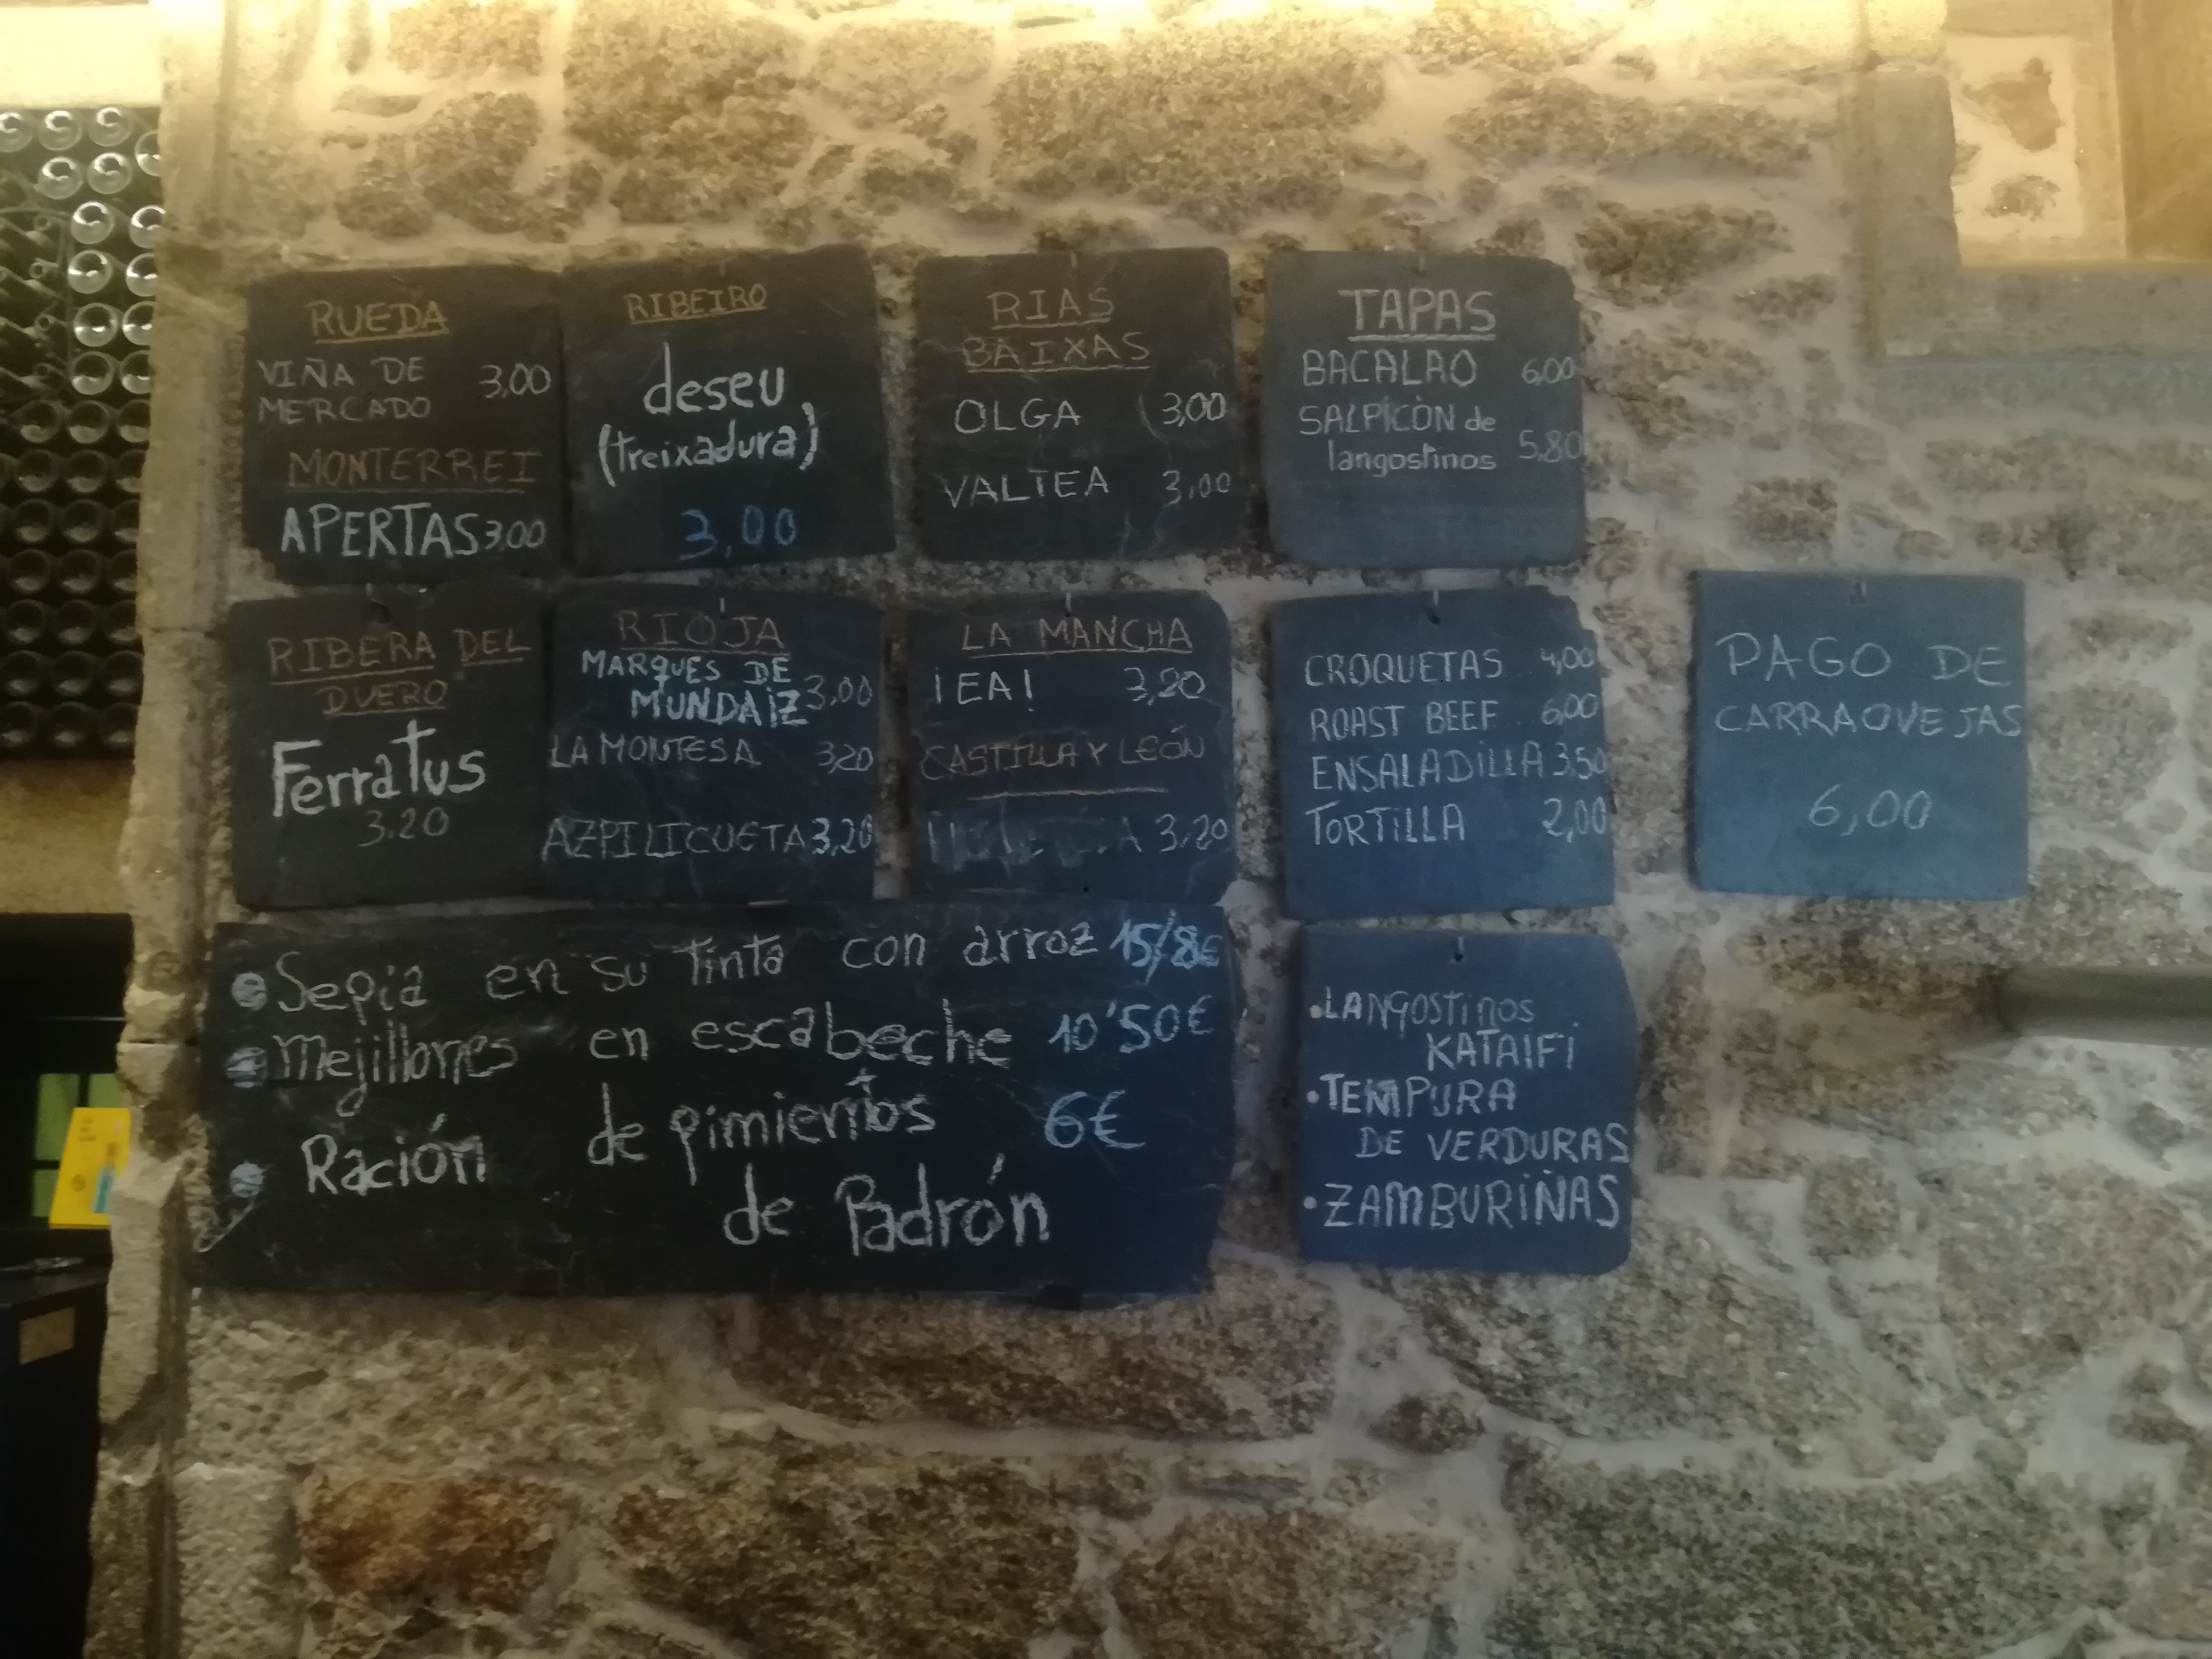 RUEDA
VIÑA DE
MERCADO 3,00
MONTERREI
APERTAS 3,00
RIBEIRO
deseu
(treixadura)
3,00
RIAS
BAIXAS
OLGA 3,00
VALTEA 3,00
TAPAS
BACALAO 6,00
SALPICÒN de
langostinos 5,80
RIBERA DEL
DUERO
Ferratus
3.20
RIOJA
MARQUES DE
MUNDAIZ 3,00
LA MONTESA 3,20
AZPILICUETA 3,20
LA MANCHA
¡EA! 3,20
CASTILLA Y LEÓN
3,20
CROQUETAS 4,00
ROAST BEEF 6,00
ENSALADILLA 3,50
TORTILLA 2,00
PAGO DE
CARRAOVEJAS
6,00
Sepia en su tinta con arroz 15/8€
Mejillones en escabeche 10'50€
Ración de pimientos 6€
de Padrón
•LANGOSTINOS
KATAIFI
•TEMPURA
DE VERDURAS
•ZAMBURIÑAS